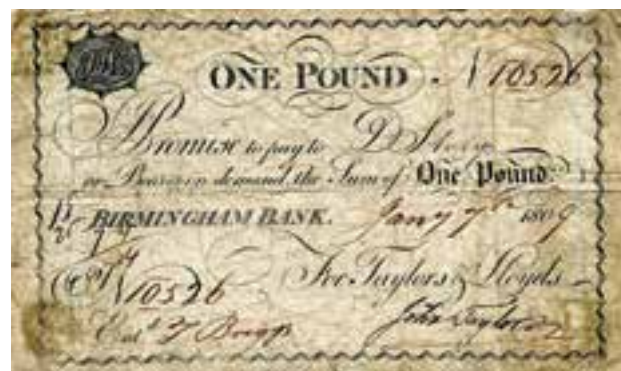 ONE POUND. N 10526
I Promise to pay to D
or Bearer on demand the Sum of One Pound.
BIRMINGHAM BANK. Jany 7th 1809
N 10526 For Taylors & Lloyds
Entd John Taylor